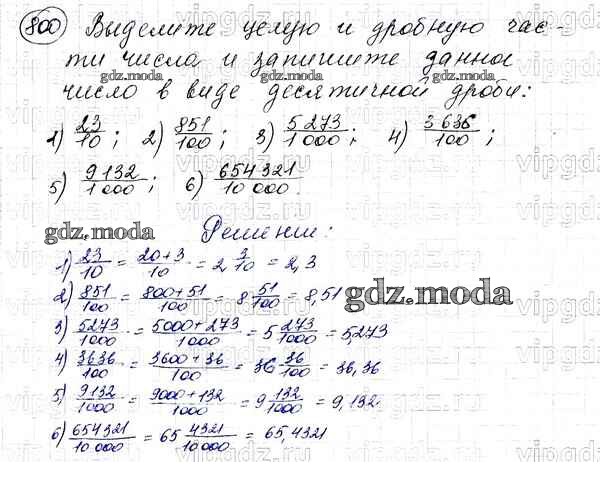 800 Выделите целую и дробную час-
ти числа и запишите данное
число в виде десятичной дроби:
1) 23/10; 2) 851/100; 3) 5273/1000; 4) 3636/100;
5) 9132/1000; 6) 654321/10000.
gdz.moda
Решение:
1) 23/10 = 20+3/10 = 2 3/10 = 2,3
2) 851/100 = 800+51/100 = 8 51/100 = 8,51
gdz.moda
3) 5273/1000 = 5000+273/1000 = 5 273/1000 = 5,273
4) 3636/100 = 3600+36/100 = 36 36/100 = 36,36
5) 9132/1000 = 9000+132/1000 = 9 132/1000 = 9,132
6) 654321/10000 = 65 4321/10000 = 65,4321